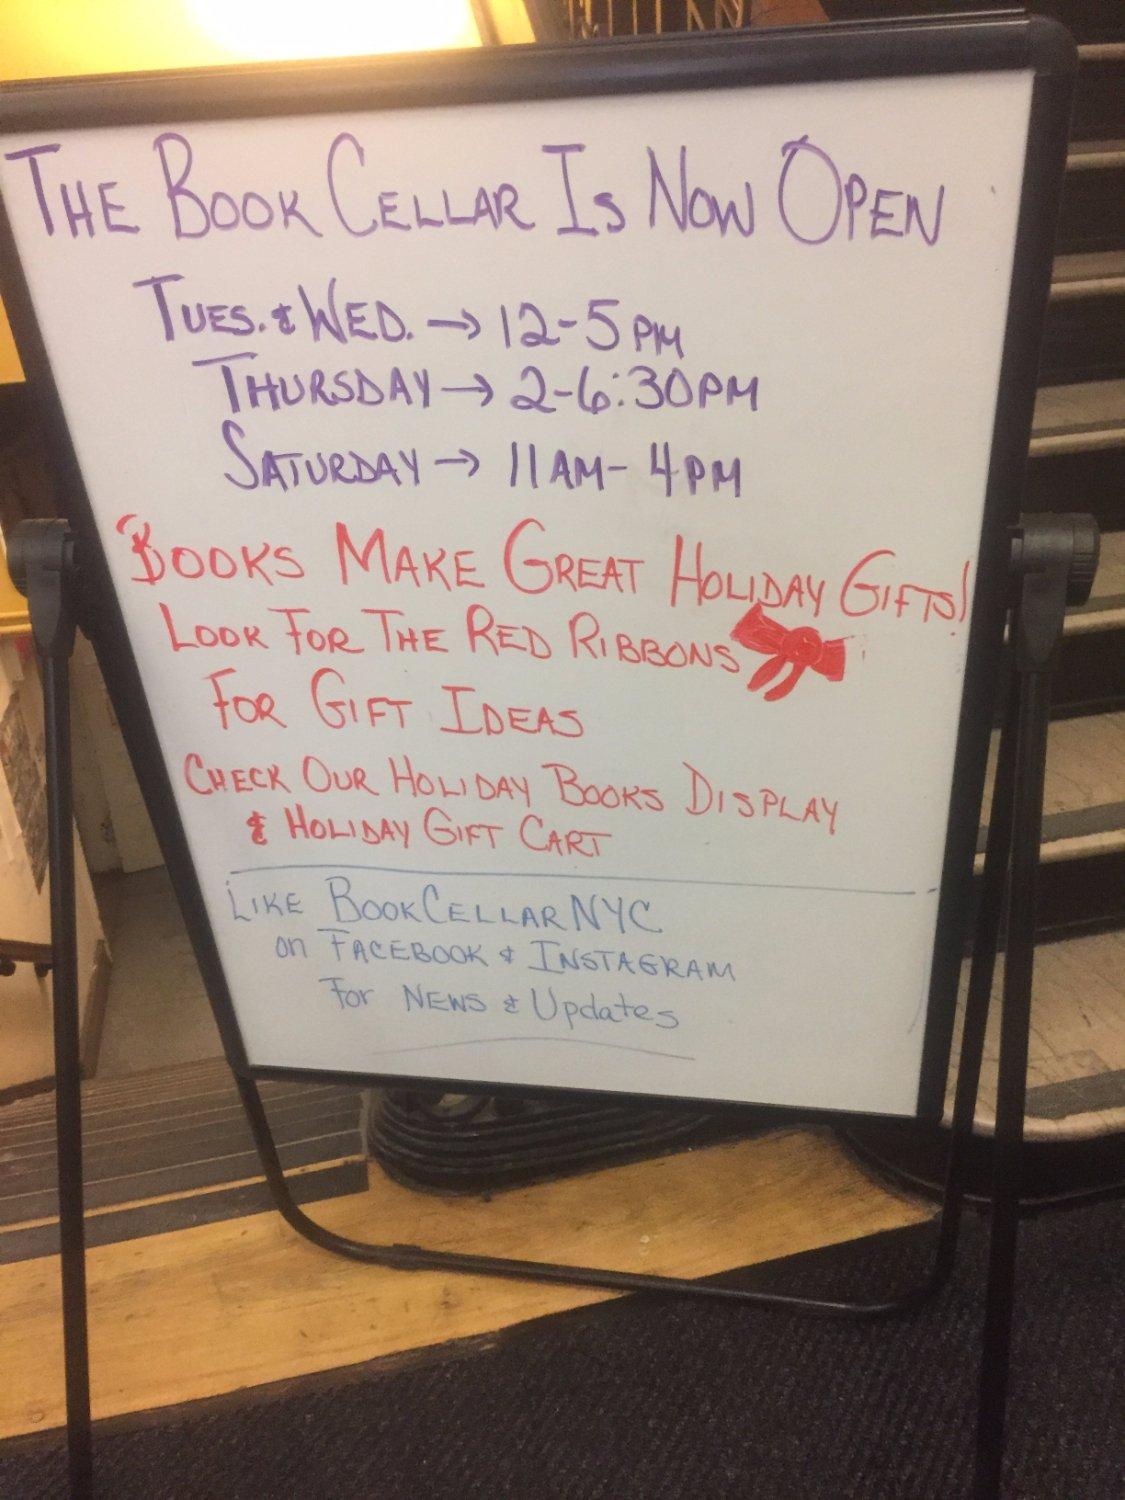 THE BOOK CELLAR IS NOW OPEN
TUES. & WED. → 12-5PM
THURSDAY → 2-6:30PM
SATURDAY → 11AM-4PM
BOOKS MAKE GREAT HOLIDAY GIFTS!
LOOK FOR THE RED RIBBONS
FOR GIFT IDEAS
CHECK OUR HOLIDAY BOOKS DISPLAY
& HOLIDAY GIFT CART
LIKE BOOKCELLARNYC
on FACEBOOK & INSTAGRAM
For NEWS & Updates